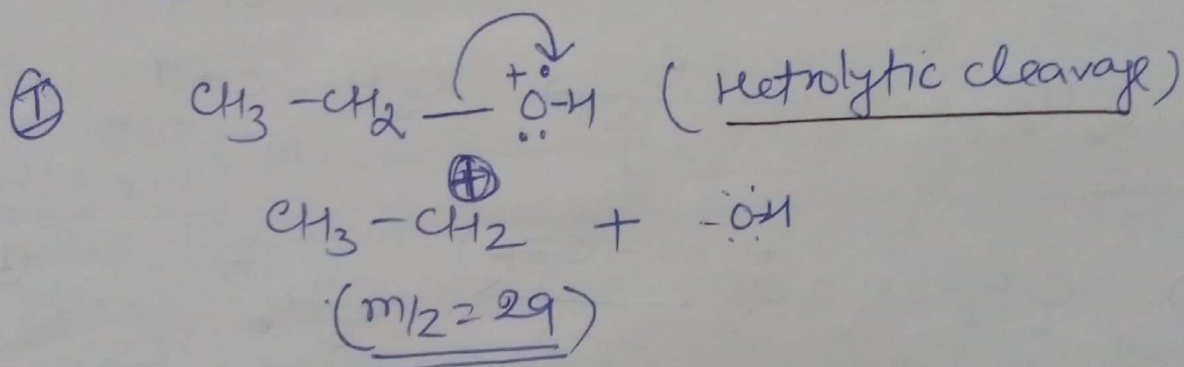 ① CH₃ - CH₂ — O-H (Hetrolytic cleavage)
CH₃ - CH₂ + - OH
(m/z = 29)